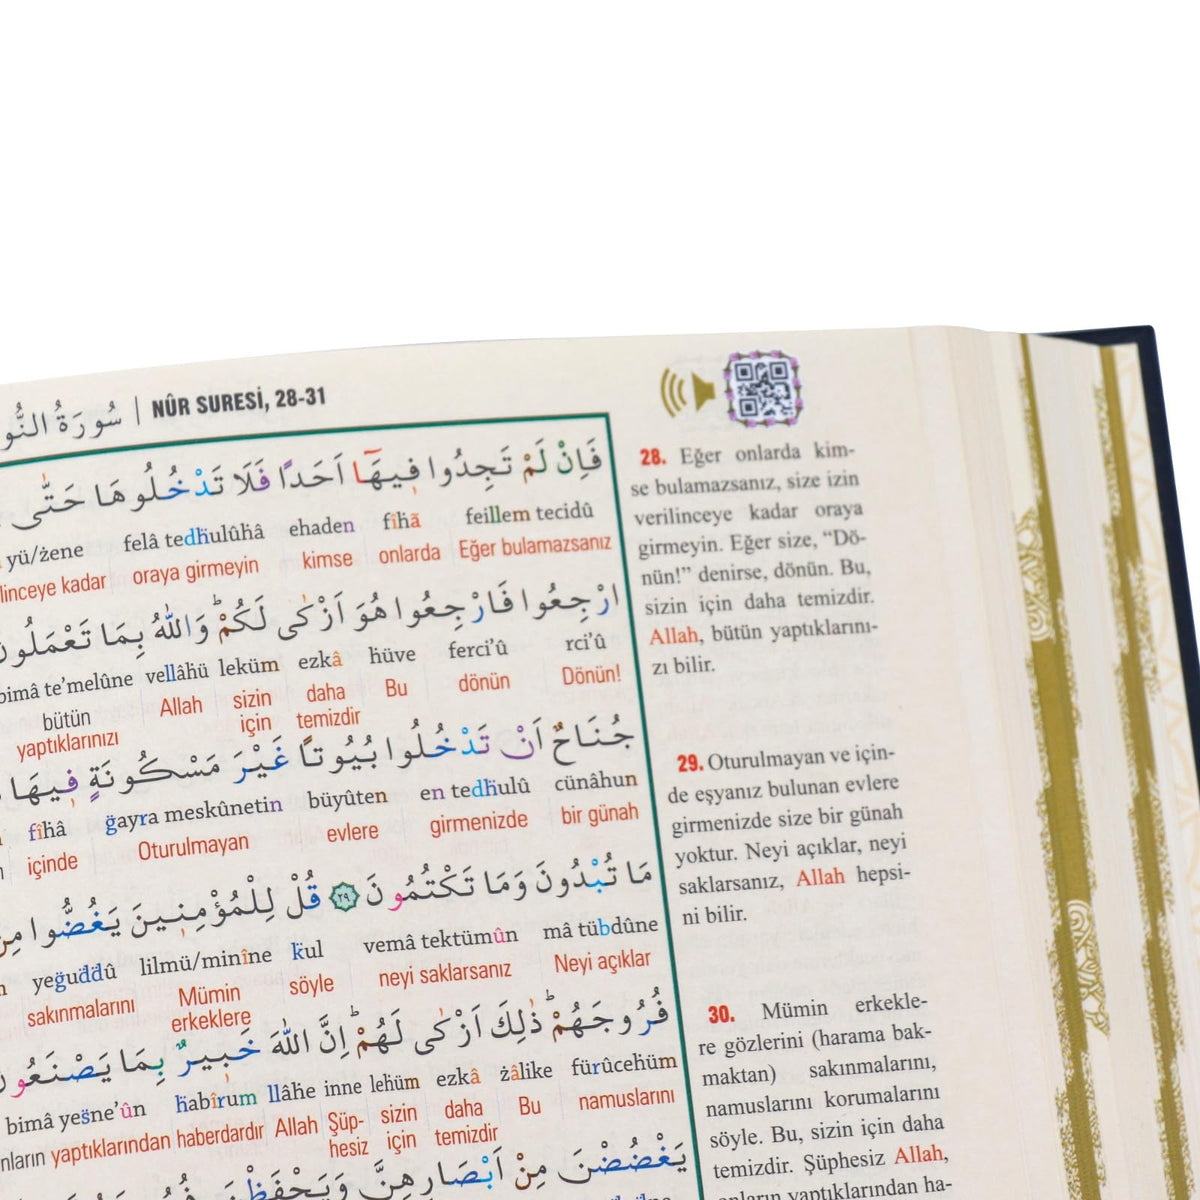 سُورَةُ النُّو | NÛR SURESİ, 28-31
فَاِنْ لَمْ تَجِدُوا فٖيهَٓا اَحَدًا فَلَا تَدْخُلُوهَا حَتّٰى
yü/żene felâ tedḣulûhâ ehaden fîhã feillem tecidû
linceye kadar oraya girmeyin kimse onlarda Eğer bulamazsanız
ارْجِعُوا فَارْجِعُوا هُوَ اَزْكٰى لَكُمْؕ وَاللّٰهُ بِمَا تَعْمَلُونَ
bimâ te’melûne vellâhü leküm ezkâ hüve ferci’û rci’û
bütün Allah sizin daha Bu dönün Dönün!
yaptıklarınızı için temizdir
جُنَاحٌ اَنْ تَدْخُلُوا بُيُوتًا غَيْرَ مَسْكُونَةٍ فٖيهَا
fîhâ ğayra meskûnetin büyûten en tedḣulû cünâhun
içinde Oturulmayan evlere girmenizde bir günah
مَا تُبْدُونَ وَمَا تَكْتُمُونَ ﴿٢٩﴾ قُلْ لِلْمُؤْمِنٖينَ يَغُضُّوا مِنْ
yeğuddû lilmü/minîne kul vemâ tektümûn mâ tübdûne
sakınmalarını Mümin söyle neyi saklarsanız Neyi açıklar
erkeklere
فُرُوجَهُمْؕ ذٰلِكَ اَزْكٰى لَهُمْؕ اِنَّ اللّٰهَ خَبٖيرٌ بِمَا يَصْنَعُونَ
bimâ yesne’ûn ḣabîrum llâhe inne lehüm ezkâ żâlike fürûcehüm
nların yaptıklarından haberdardır Allah Şüp- sizin daha Bu namuslarını
hesiz için temizdir
يَغْضُضْنَ مِنْ اَبْصَارِهِنَّ وَيَحْفَظْنَ
28. Eğer onlarda kim-
se bulamazsanız, size izin
verilinceye kadar oraya
girmeyin. Eğer size, “Dö-
nün!” denirse, dönün. Bu,
sizin için daha temizdir.
Allah, bütün yaptıklarını-
zı bilir.
29. Oturulmayan ve için-
de eşyanız bulunan evlere
girmenizde size bir günah
yoktur. Neyi açıklar, neyi
saklarsanız, Allah hepsi-
ni bilir.
30. Mümin erkekle-
re gözlerini (harama bak-
maktan) sakınmalarını,
namuslarını korumalarını
söyle. Bu, sizin için daha
temizdir. Şüphesiz Allah,
onların yaptıklarından ha-